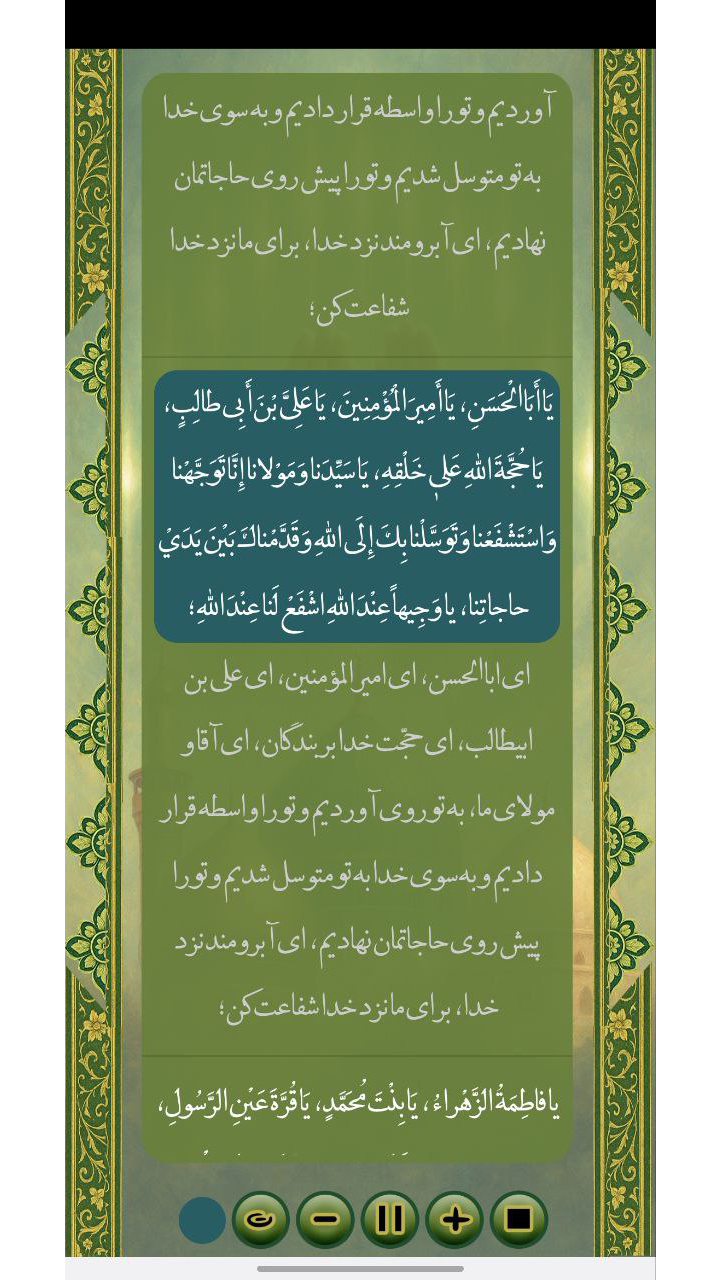 آوردیم و تو را واسطه قرار دادیم و به سوی خدا
به تو متوسل شدیم و تو را پیش روی حاجاتمان
نهادیم، ای آبرومند نزد خدا، برای ما نزد خدا
شفاعت کن؛
یَا أَبَا الْحَسَنِ، یَا أَمِیرَ الْمُؤْمِنِینَ، یَا عَلِیَّ بْنَ أَبِی طالِبٍ،
یَا حُجَّةَ اللّٰهِ عَلیٰ خَلْقِهِ، یَا سَیِّدَنا وَمَوْلانا إِنَّا تَوَجَّهْنا
وَاسْتَشْفَعْنا وَتَوَسَّلْنا بِكَ إِلَی اللّٰهِ وَقَدَّمْناكَ بَیْنَ یَدَیْ
حاجاتِنا، یا وَجِیهاً عِنْدَ اللّٰهِ اشْفَعْ لَنا عِنْدَ اللّٰهِ؛
ای ابا الحسن، ای امیر المؤمنین، ای علی بن
ابیطالب، ای حجّت خدا بر بندگان، ای آقا و
مولای ما، به تو روی آوردیم و تو را واسطه قرار
دادیم و به سوی خدا به تو متوسل شدیم و تو را
پیش روی حاجاتمان نهادیم، ای آبرومند نزد
خدا، برای ما نزد خدا شفاعت کن؛
یا فاطِمَةُ الزَّهْراءُ، یَا بِنْتَ مُحَمَّدٍ، یَا قُرَّةَ عَیْنِ الرَّسُولِ،